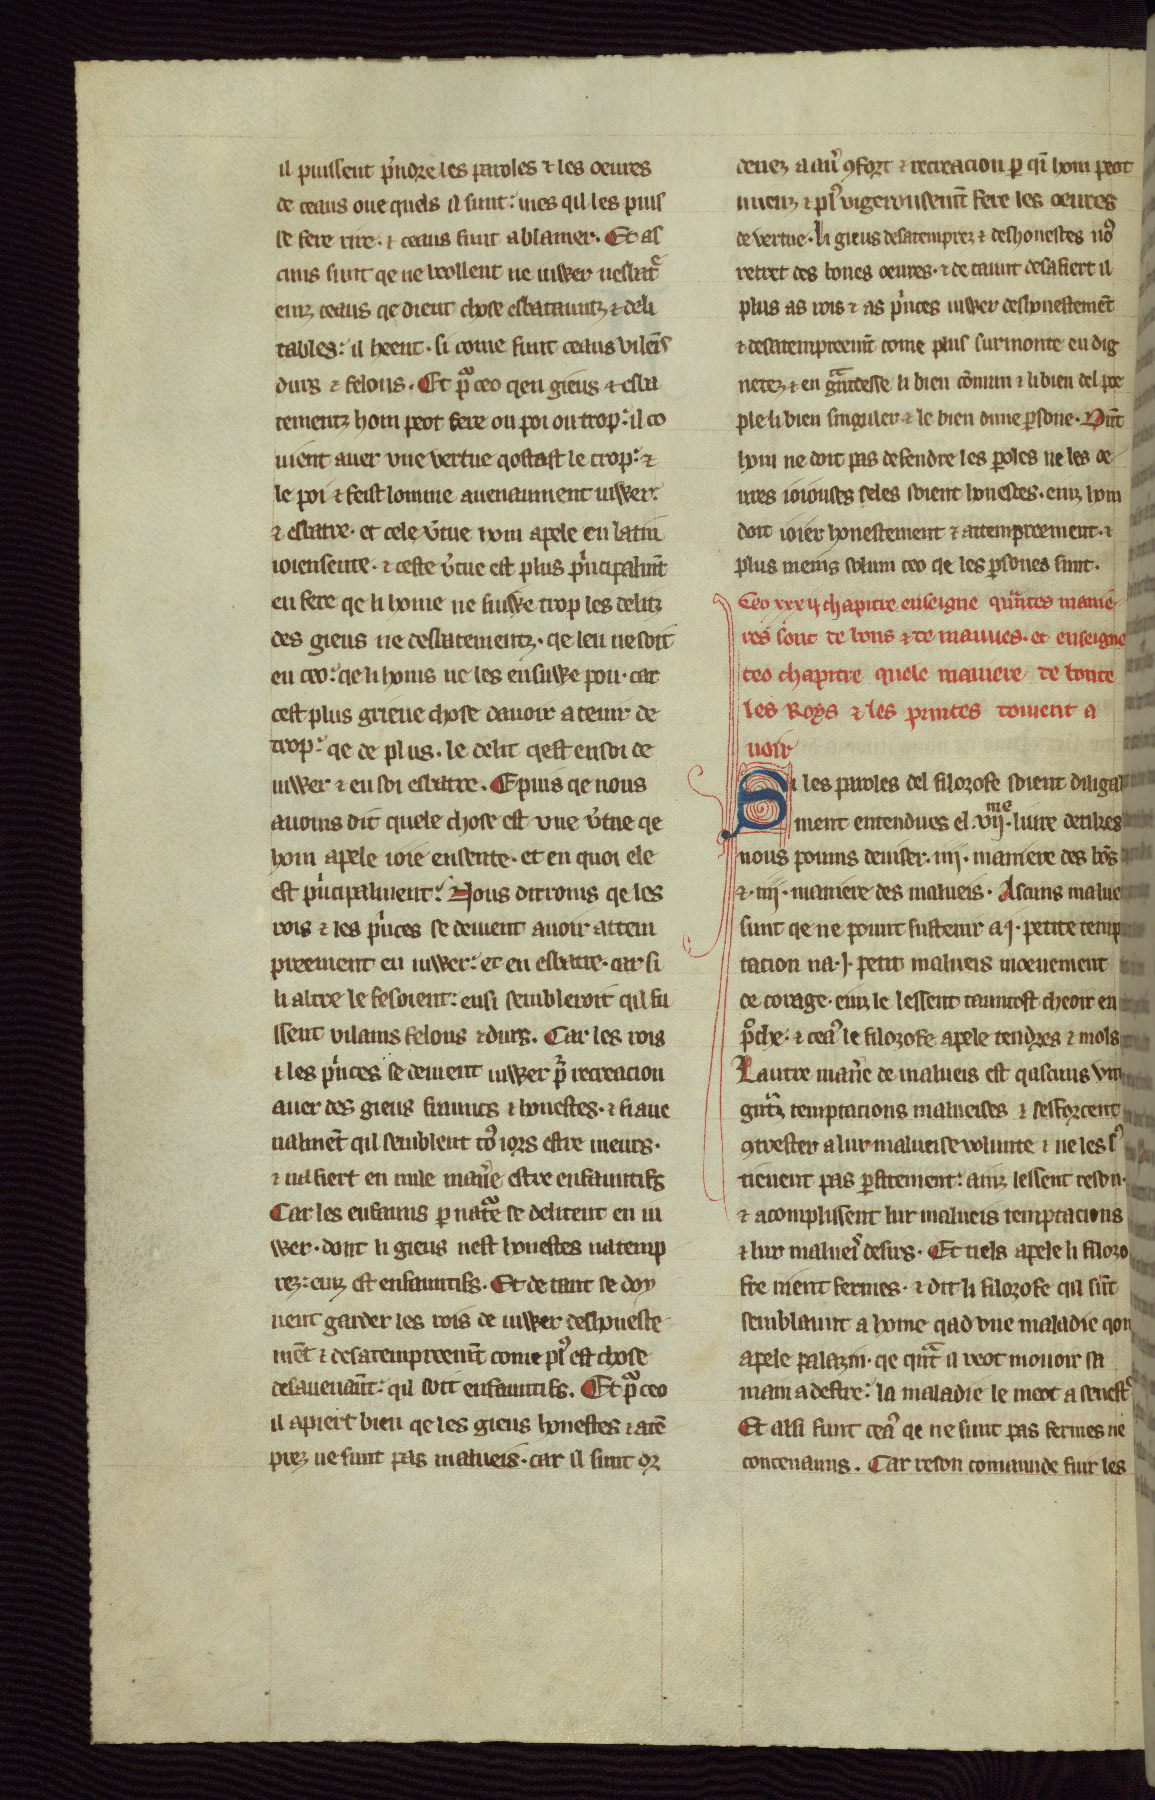 il puissent p̾ndre les paroles ⁊ les oeures
de ceaus oue quels il sunt: mes qil les puis
se fere rire. ⁊ ceaus funt a blamer. Et as
cuns sunt qe ne veollent ne iuwer nesbat̾
einz ceaus qe dient chose esbatauntz ⁊ deli
tables: il heent. si come funt ceaus vileīs
durs ⁊ felons. Et pᵃ ceo qen gieus ⁊ esba
tementz hom peot fere ou poi ou trop: il co
uient auer vne vertue qostast le trop: ⁊
le poi ⁊ feist lomme auenaument iuwer:
⁊ esbatre. et cele v̾tue hom apele en latin
ioiensente. ⁊ ceste v̾tue est plus p̾ncipalmt̄
en fere qe li home ne suiwe trop les delitz
des gieus ne desbatementz. qe leu ne soit
en ceo: qe li homs ne les ensuiwe pou. car
cest plus grieue chose dauoir a tenir de
trop: qe de plus. le delit qest en soi de
iuwer ⁊ en soi esbatre. E puis qe nous
auoms dit quele chose est vne v̾tue qe
hom apele ioie ensente. et en quoi ele
est p̾ncipalment: Nous dirroms qe les
rois ⁊ les p̾nces se deiuent auoir attem
preement en iuwer: et en esbatre. car si
li altre le fesoient: ensi sembleroit qil fu
ssent vilains felons ⁊ durs. Car les rois
⁊ les p̾nces se deiuent iuwer pᵃ recreacion
auer des gieus fraunts ⁊ honestes. ⁊ si aue
nalmēt qil semblent toꝰ iors estre meurs.
⁊ na fiert en nule man̾e estre enfauntifs
Car les enfauns p natᵃe se delitent en iu
wer. dont li gieus nest honestes natemp
rez: einz est enfauntifs. Et de tant se doy
uent garder les rois de iuwer deshoneste
mēt ⁊ desatempreemt̄ come plꝰ est chose
desauenaūt: qil soit enfauntifs. Et pᵃ ceo
il apiert bien qe les gieus honestes ⁊ atē
prez ne sunt pas malueis. car il sunt or
denez a aū ꝯfort ⁊ recreacion p qi hom peot
mieuz ⁊ plꝰ vigerousemt̄ fere les oeures
de vertue. li gieus desatemprez ⁊ deshonestes noꝰ
retret des bones oeures. ⁊ de taunt desafiert il
plus as rois ⁊ as p̾nces iuwer deshonestemēt
⁊ desatempreemt̄ come plus surmonte en dig
netez ⁊ en gᵃndesse li bien cōmun ⁊ li bien del poe
ple li bien singuler ⁊ le bien dune psone.
hom ne doit pas defendre les poles ne les oe
ures ioiouses seles soient honestes. einz hom
doit ioier honestement ⁊ attempreement. ⁊
plus meins solum ceo qe les psones sunt.
Ceo xxx ij chapitre enseigne quᵃntes manie
res sont de bons ⁊ de mauues. et enseigne
ceo chapitre quele maniere de bonte
les Roys ⁊ les princes doiuent a
uoir
Si les paroles del filozofe soient diligal
ment entendues el. vijᵐᵉ. liure dethēs
nous poums deuiser. iiij. maniere des bōs
⁊. iiij. maniere des malueis. Ascuns malue
sunt qe ne pount sustenir a .j. petite temp
tacion na .j. petit malueis moeuement
de corage. einz le lessent tauntost cheoir en
pᵒche. ⁊ ceaꝰ le filozofe apele tendres ⁊ mols
Lautre man̾e de malueis est qascuns vn
gntᵃz temptacions malueises ⁊ sesforcent
ꝯtrester a lur malueise volunte ⁊ ne les sꝰ
tienent pas pfitement: ainz lessent reson.
⁊ acomplissent lur malueis temptacions
⁊ lur malueiꝰ desirs. Et tiels apele li filozo
fre nient fermes. ⁊ dit li filozofe qil sūt
semblaunt a home qad vne maladie qon
apele palazin. qe qntᵃ il veot mouoir sa
main a destre: la maladie le meot a senestꝰ
Et alsi funt ceaꝰ qe ne sunt pas fermes ne
contenauns. Car reson comaunde fuir les